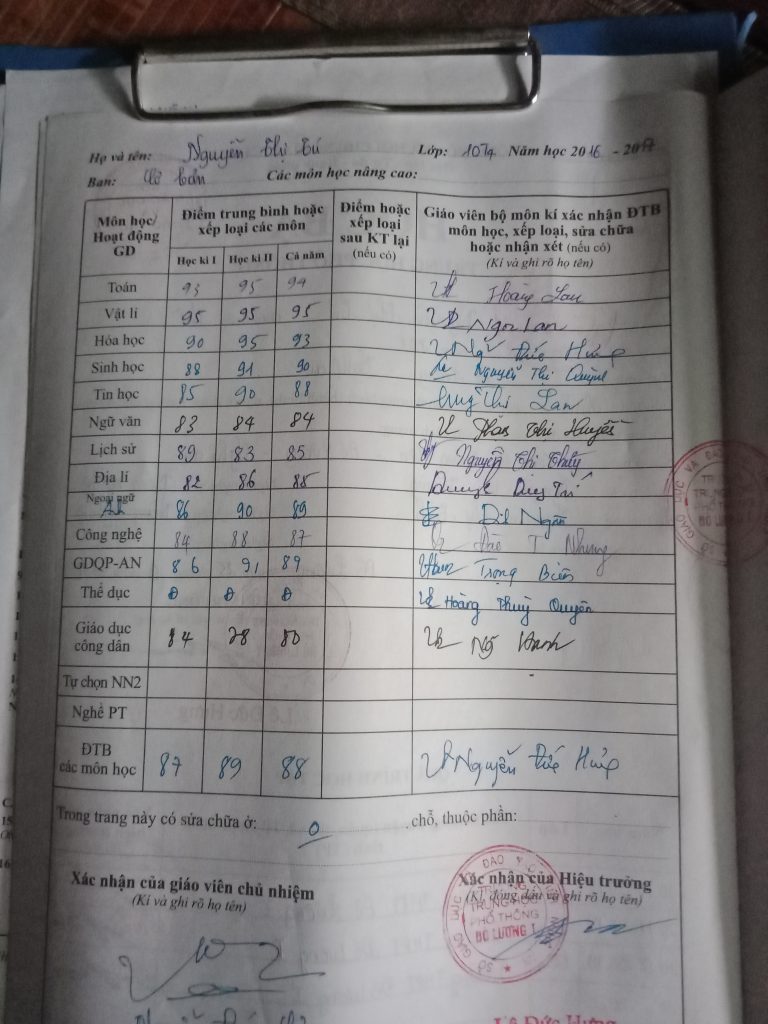 Họ và tên: Nguyễn Thị Tú Lớp: 10T4 Năm học 2016 - 2017
Ban: Cơ bản Các môn học nâng cao:
Môn học/ Hoạt động GD
Điểm trung bình hoặc xếp loại các môn
Điểm hoặc xếp loại sau KT lại (nếu có)
Giáo viên bộ môn kí xác nhận ĐTB môn học, xếp loại, sửa chữa hoặc nhận xét (nếu có)
(Kí và ghi rõ họ tên)
Học kì I Học kì II Cả năm
Toán 93 95 94 Hoàng Lan
Vật lí 95 95 95 Ngọc Lan
Hóa học 90 95 93 Ng Đức Hưng
Sinh học 88 91 90 Nguyễn Thị Quỳnh
Tin học 85 90 88 Thị Lan
Ngữ văn 83 84 84 Phan Thị Huyền
Lịch sử 89 83 85 Nguyễn Thị Thủy
Địa lí 82 86 85 Duy Trí
Ngoại ngữ Anh 86 90 89 Ngân
Công nghệ 84 88 87 T Nhung
GDQP-AN 86 91 89 Trọng Biên
Thể dục Đ Đ Đ Hoàng Thuý Quyên
Giáo dục công dân 84 78 80 Ng Hanh
Tự chọn NN2
Nghề PT
ĐTB các môn học 87 89 88 Nguyễn Đức Hưng
Trong trang này có sửa chữa ở: 0 chỗ, thuộc phần:
Xác nhận của giáo viên chủ nhiệm
(Kí và ghi rõ họ tên)
Xác nhận của Hiệu trưởng
(Kí, đóng dấu và ghi rõ họ tên)
TRUNG HỌC
PHỔ THÔNG
ĐÔ LƯƠNG I
Lê Đức Hưng